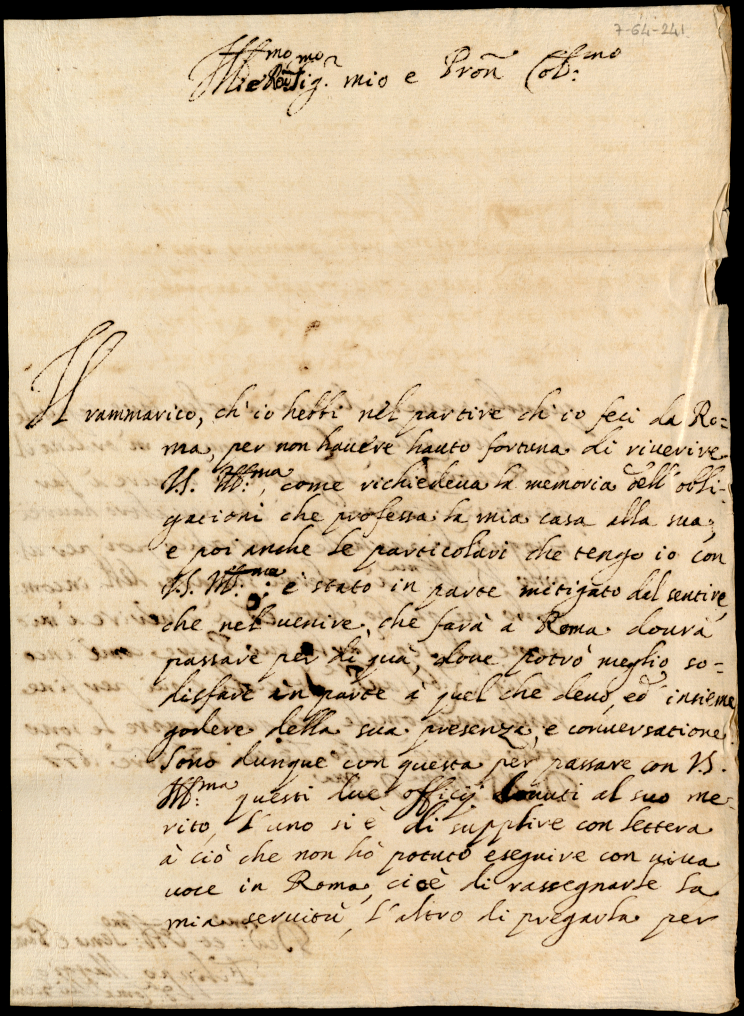 7-64-241
Ill.mo e Rev.mo Sig.r mio e Pron Col.mo
Il rammarico, ch'io hebbi nel partire ch'io feci da Ro=
ma, per non havere hauto fortuna di riverire
V.S. Ill.ma, come richiedeva la memoria dell'obli-
gacioni che professa la mia casa alla sua,
e poi anche le particolari che tengo io con
V.S. Ill.ma: è stato in parte mitigato dal sentire,
che nel venire, che farà à Roma dourà
passare per di quà, dove potrò meglio so=
disfare in parte à quel che devo, ed insieme
godere della sua presenza, e conversatione.
Sono dunque con questa per passare con V.S.
Ill.ma questi due officij douuti al suo me-
rito, L'uno si è di supplire con lettera
à ciò che non hò potuto eseguire con viva
voce in Roma, cioè di rassegnarle la
mia servitù, L'altro di pregarla per